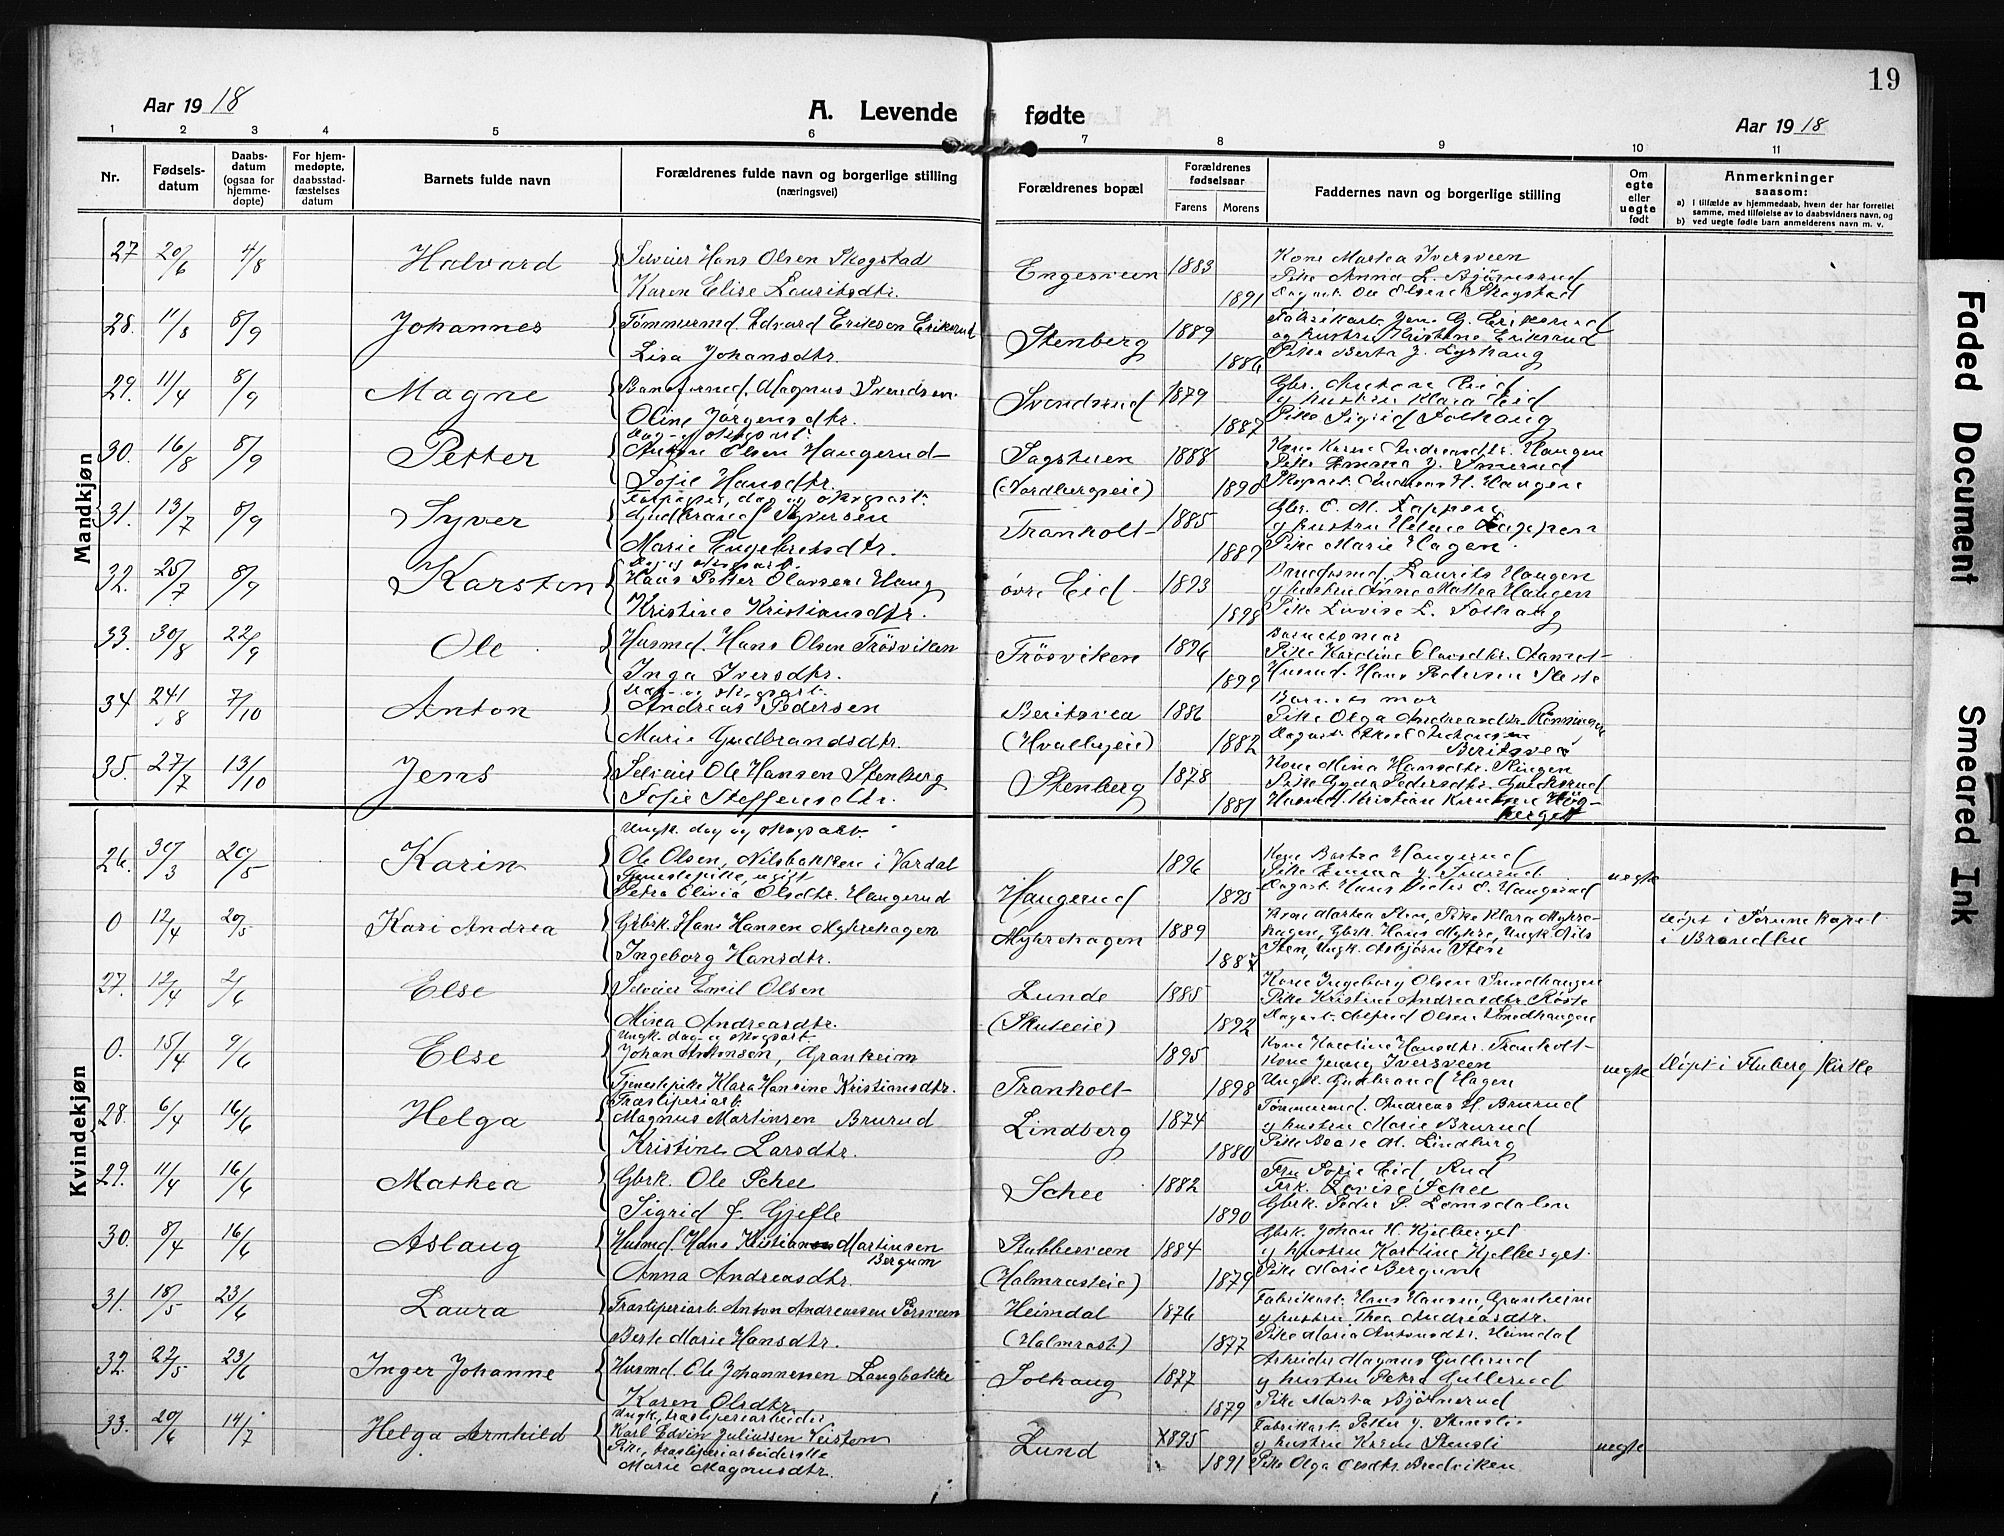 19
Aar 1918
A. Levende fødte
Aar 1918
1 2 3 4 5 6 7 8 9 10 11
Nr.
Fødsels-
datum
Daabs-
datum
(ogsaa for
hjemme-
døpte)
For hjem-
medøpte,
daabsstad-
fæstelses
datum
Barnets fulde navn
Forældrenes fulde navn og borgerlige stilling
(næringsvei)
Forældrenes bopæl
Forældrenes
fødselsaar
Farens Morens
Faddernes navn og borgerlige stilling
Om
egte
eller
uegte
født
Anmerkninger
saasom:
a) I tilfælde av hjemmedaab, hvem der har forrettet
samme, med tilføielse av to daabsvidners navn, og
b) ved uegte fødte barn anmelderens navn m. v.
Mandkjøn
27 20/6 4/8 Halvard Selveier Hans Olsen Skogstad Engesveen 1883 Kone Marthea Iversveen
Pike Anna L. Bjørnerud
Karen Elise Lauritsdtr. 1891 Dagarb. Ole Olsen Skogstad
28. 11/8 8/9 Johannes Tømmermd. Edvard Eriksen Eriksrud Stenberg 1889 Fabrikarb. G. Eriksrud
og hustru Kristine Eriksrud
Lisa Johansdtr. 1886 Pike Berta J. Lyshaug
29. 11/4 8/9 Magne Magnus Svendsen Svendsrud 1879 Gbr. Anton Eid
og hustru Klara Eid
Oline Jørgensdtr. 1887 Pike Sigrid Solhaug
30. 16/8 8/9 Petter Dag- og skogsarb.
Anton Olsen Haugerud Sagstuen 1888 Kone Karen Andreasdtr. Haugen
Pike Emma J. Smerud
Sofie Hansdtr. (Nordbergseie) 1890 Skogsarb. Andreas H. Haugen
31. 13/7 8/9 Syver Forpagter, dag og skogsarb.
Gudbrand Syversen Tranholt 1885 Gbr. E. M. Tappen
og hustru Helene Tappen
Marie Engebretsdtr. 1889 Pike Marie Hagen.
32. 25/7 8/9 Karsten Dag og skogsarb.
Hans Petter Olaussen Haug øvre Eid 1893 Laurits Haugen
og hustru Anne Mathea Haugen
Kristine Kristiansdtr. 1898 Pike Lovise L. Solhaug
33. 30/8 22/9 Ole Husmd. Hans Olsen Trøsviken Trøsviken 1896 Barnets mor
Pike Karoline Olausdtr. Aamot
Inga Iversdtr. 1899 Husmd. Hans Pedersen
34 24/8 7/10 Anton Dag- og skogsarb.
Andreas Pedersen Beritsvea 1886 Barnets mor
Pike Olga Andreasdtr. Rønningen
Marie Gudbrandsdtr. (Hvalbyeie) 1882 Dagarb.
Beritsvea
35. 27/7 13/10 Jens Selveier Ole Hansen Stenberg Stenberg 1878 Kone Mina Hansdtr. Ringen
Pike Gyda Pedersdtr.
Sofie Steffensdtr. 1881 Husmd. Kristian
Kvindekjøn
26. 30/3 20/5 Karin Ungk. dag og skogsarb.
Ole Olsen, Nilsbakken i Vardal 1896 Kone Barbra Haugerud
Tjenestepike, ugift Pike Emma J. Smerud uegte
Petra Elivia Olsdtr. Haugerud Haugerud 1895 Dagarb. Hans Peder O. Haugerud
0 12/4 20/5 Kari Andrea Gbrk. Hans Hansen Myhrehagen Myhrehagen 1889 Kone Marthea Sten, Pike Klara Myhre-
hagen, Gbrk. Hans Myhre, Ungk. Nils døpt i Sørum kapel
Ingeborg Hansdtr. 1887 Sten, Ungk. Asbjørn Sten i Brandbu
27. 12/4 2/6 Else Selveier Emil Olsen Lunde 1885 Kone Ingeborg Olsen Smedhaugen
Pike Kristine Andreasdtr. Røste
Mina Andreasdtr. (Skuteeie) 1892 Dagarb. Alfred Olsen Smedhaugen
0. 15/4 9/6 Else Ungk. dag- og skogsarb.
Johan Antonsen, Granheim 1895 Kone Karoline Hansdtr. Tranholt
Kone Jenny Iversveen uegte Døpt i Fluberg kirke
Tjenestepike Klara Hansine Kristiansdtr. Tranholt 1898 Ungk. Gudbrand Hagen
28. 6/4 16/6 Helga Træsliperiarb.
Magnus Martinsen Brurud Lindberg 1874 Tømmermd. Andreas H. Brurud
og hustru Marie Brurud
Kristine Larsdtr. 1880 Pike M. Lindberg
29. 11/4 16/6 Mathea Gbrk. Ole Schee Schee 1882 Fru Sofie Eid, Rud
Frk. Lovise Schee
Sigrid J. Gjefle 1890 Gbrk. Peder P. Lomsdalen
30. 8/4 16/6 Aslaug Husmd. Hans Kristiansen Martinsen
Bergum Stubbesveen 1884 Gbrk. Johan H. Kjelberget
og hustru Karoline Kjelberget
Anna Andreasdtr. (Halmrasteie) 1879 Pike Marie Bergum
31. 18/5 23/6 Laura Træsliperiarb. Anton Andreassen Sørsveen Heimdal 1876 Fabrikarb. Hans Hansen, Granheim
og hustru Thea Andreasdtr.
Berte Marie Hansdtr. (Halmrast) 1877 Pike Maria Antonsdtr. Heimdal
32. 22/5 23/6 Inger Johanne Husmd. Ole Johannessen Langbakke Solhaug 1877 Arbeider Magnus Gullerud
og hustru Petra Gullerud
Karen Olsdtr. 1879 Pike Marta Bjørnerud
33. 20/6 14/7 Helga Arnhild Ungk. træsliperiarbeider
Karl Edvin Juliussen Veisten Lund 1895 Fabrikarb. Petter J. Stensli
Pike, træsliperiarbeiderske og hustru Karen Stensli uegte
Marie Magnusdtr. 1891 Pike Olga Olsdtr. Bredviken
Faded Document
Smeared Ink